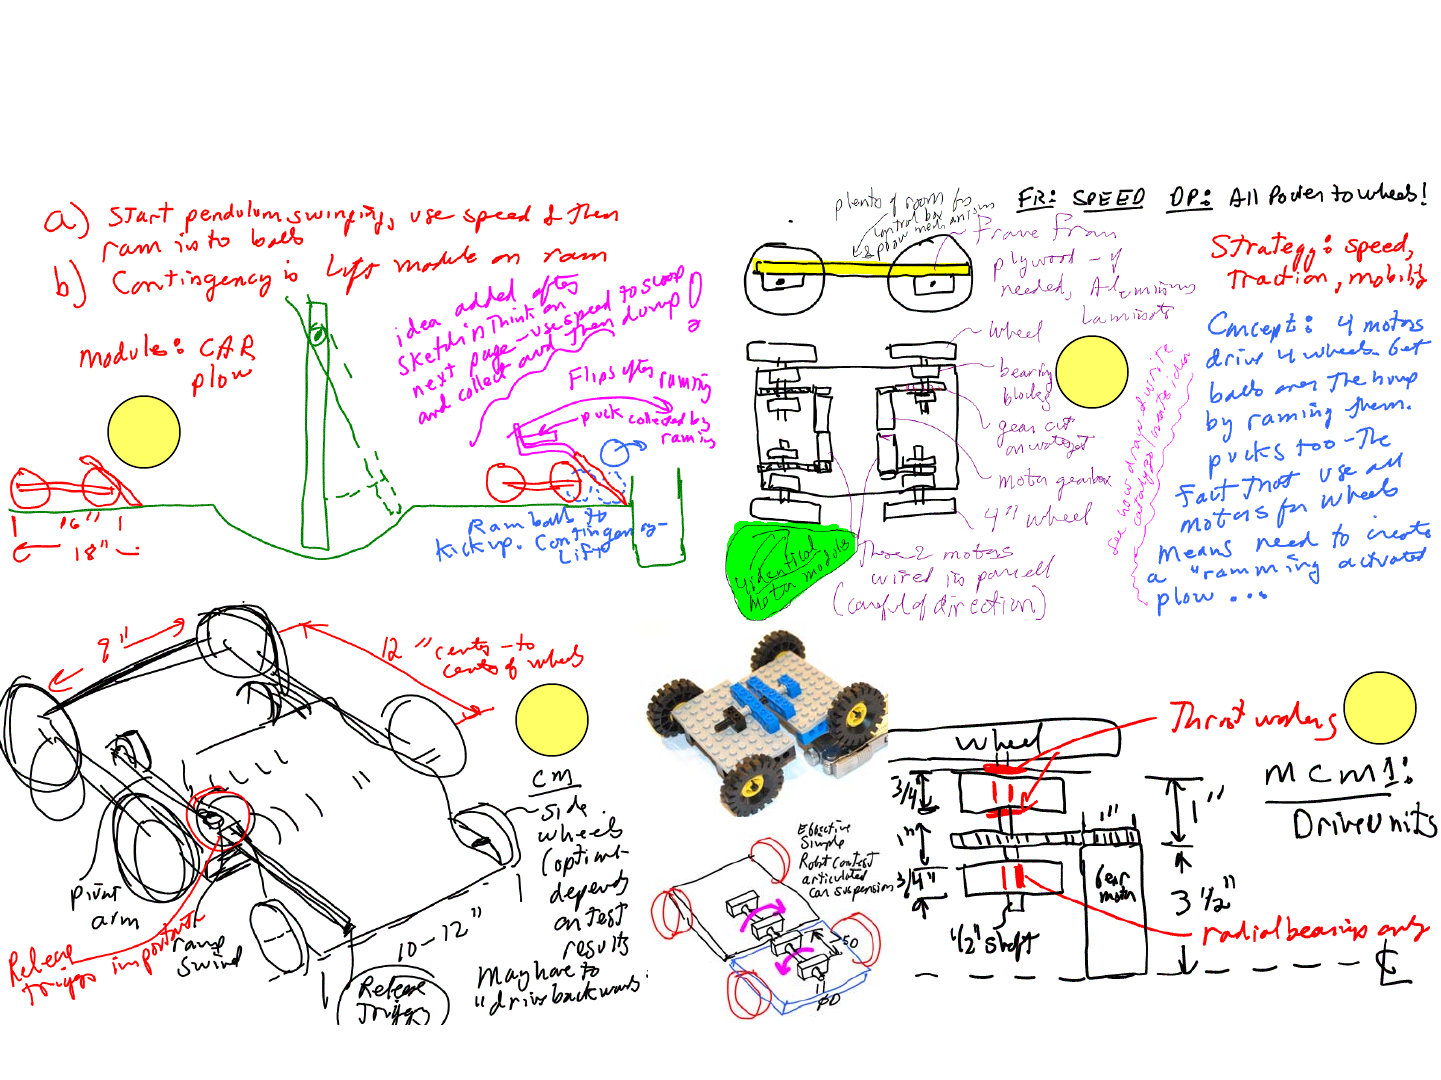 a) Start pendulum swinging, use speed & then
ram into balls
b) Contingency is Lift module on ram
Modules: CAR
plow
idea added after
Sketch in Think on
next page - use speed to scoop
and collect and then dump!
Flips after ramming
puck collected by
ramming
16"
18"
Ram balls to
kick up. Contingency -
Lift
plenty of room for
control box
& plow mechanisms
FR: SPEED DP: All Power to wheels!
Frame from
plywood - if
needed, Aluminum
Laminate
Strategy: speed,
Traction, mobility
wheel
bearing
blocks
gear cut
on waterjet
motor gearbox
4" wheel
4 identical
motor modules
These 2 motors
wired in parallel
(careful of direction)
See how drawing & write
catalyzes
idea
Concept: 4 motors
drive 4 wheels. Get
balls over the hump
by ramming them.
pucks too - The
Fact that use all
motors for wheels
means need to create
a "ramming activated
plow ...
9"
12" center-to
center of wheels
Pivot
arm
Release
Trigger important
ramp
swivel
10-12"
Release
Trigger
CM
Side
wheels
(option-
depends
on test
results
May have to
"drive backwards"
Effective
Simple
Robot contest
articulated
car suspension
wheel
Thrust washers
MCM1:
Drive units
3/4"
1"
3/4"
1"
1"
3 1/2"
Gear
motor
1/2" shaft
radial bearings only
CL